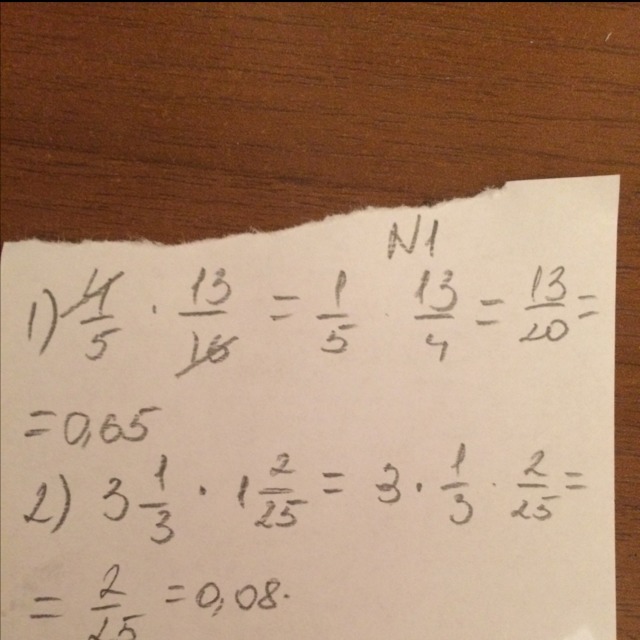 N1
1) 4/5 · 13/16 = 1/5 · 13/4 = 13/20 =
= 0,65
2) 3 1/3 · 1 2/25 = 3 · 1/3 · 2/25 =
= 2/25 = 0,08.